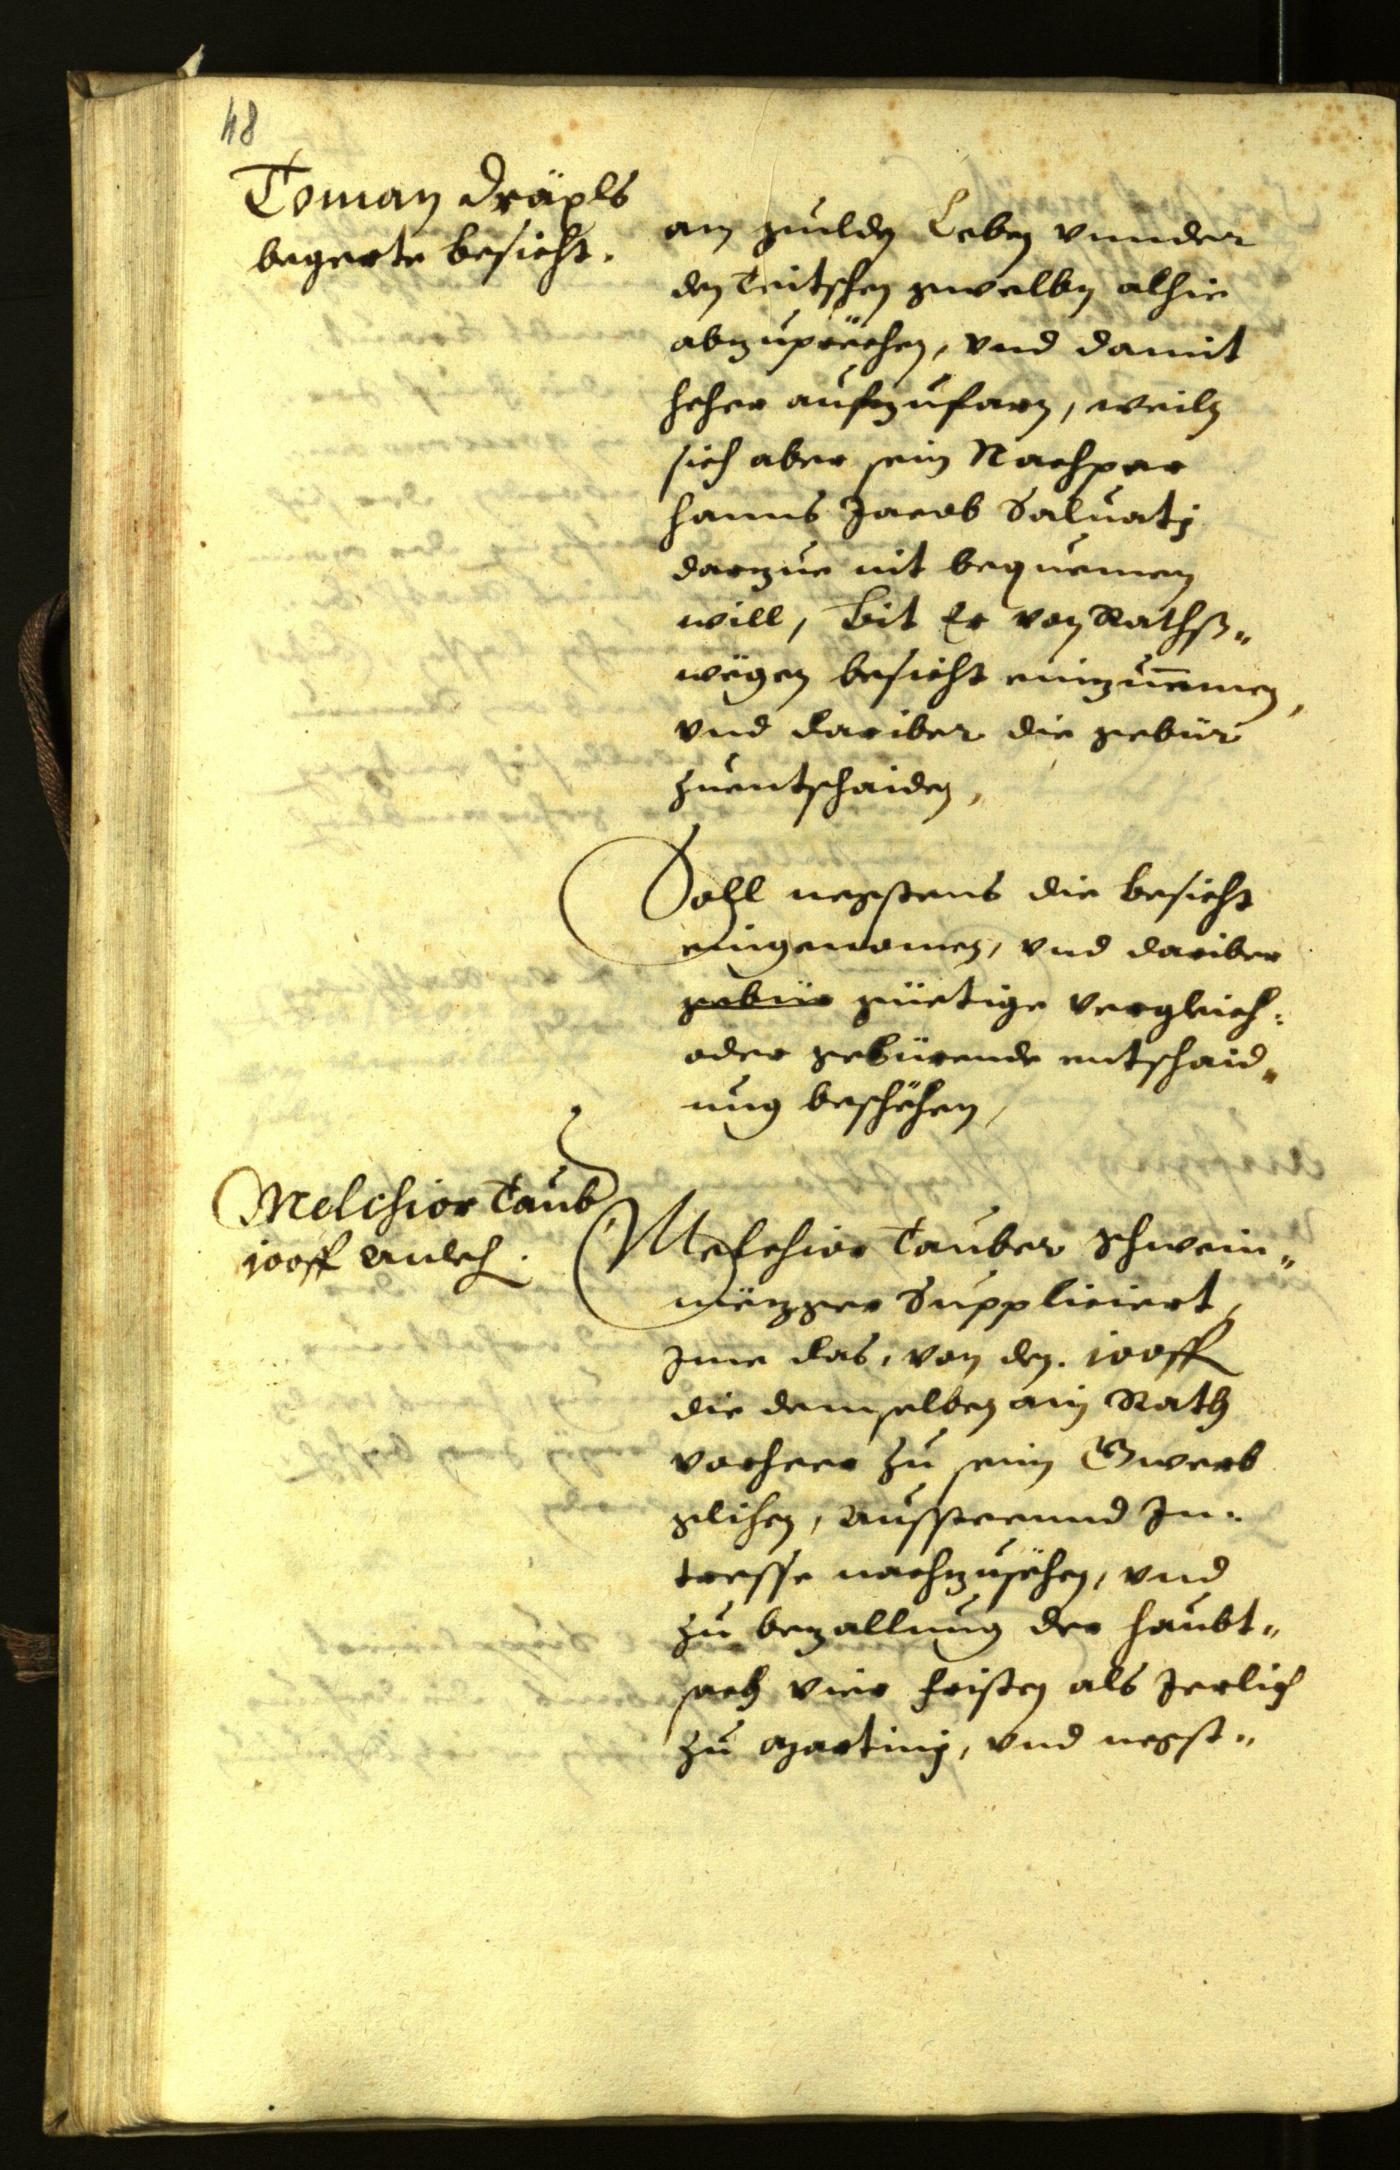 48
Toman Dräxls
begerte besicht.
am gulden Leben vnnder
den Teitschen gwelbn alhie
abzuprechen, vnd damit
heher aufzufarn, weiln
sich aber sein Nachper
Hanns Jacob Saluatj
darzue nit bequemen
will, bit Er von Rathß„
wëgen besicht einzunemen,
vnd dariber die gebür
zuentschaiden,
Soll negstens die besicht
eingenomen, vnd dariber
gebür güetige vergleich:
oder gebürende entschaid„
nug beschëhen,
Melchior Taub
100 fl anlech.
Melchior Tauber Schwein„
mëzger Suppliciert,
Jme das, von den. 100 fl
die demselben ain Rath
vorheer zu seim Gwerb
glihen, aussteeund In„
teresse nachzusëhen, vnd
zu bezallung der haubt„
sach vier fristen als Jerlich
zu Martinj, vnd negst„